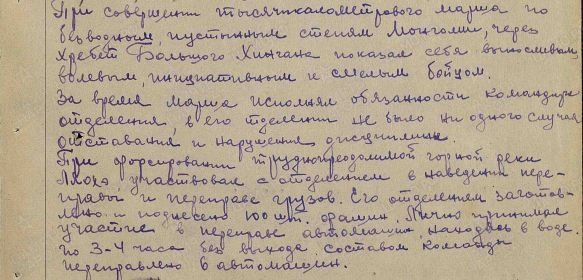 При совершении тысячикилометрового марша по
безводным, пустынным степям Монголии, через
хребет Большого Хингана показал себя выносливым,
волевым, инициативным и смелым бойцом.
За время марша исполнял обязанности командира
отделения, в его отделении не было ни одного случая
отставания и нарушения дисциплины.
При форсировании труднопреодолимой горной реки
участвовал с отделением в наведении пере-
правы и переправе грузов. Его отделением заготов-
лено и поднесено 100 шт. фашин. Лично принимал
участие в переправе автомашин, находясь в воде
по 3-4 часа без выхода. составом команды
переправлено 6 автомашин.